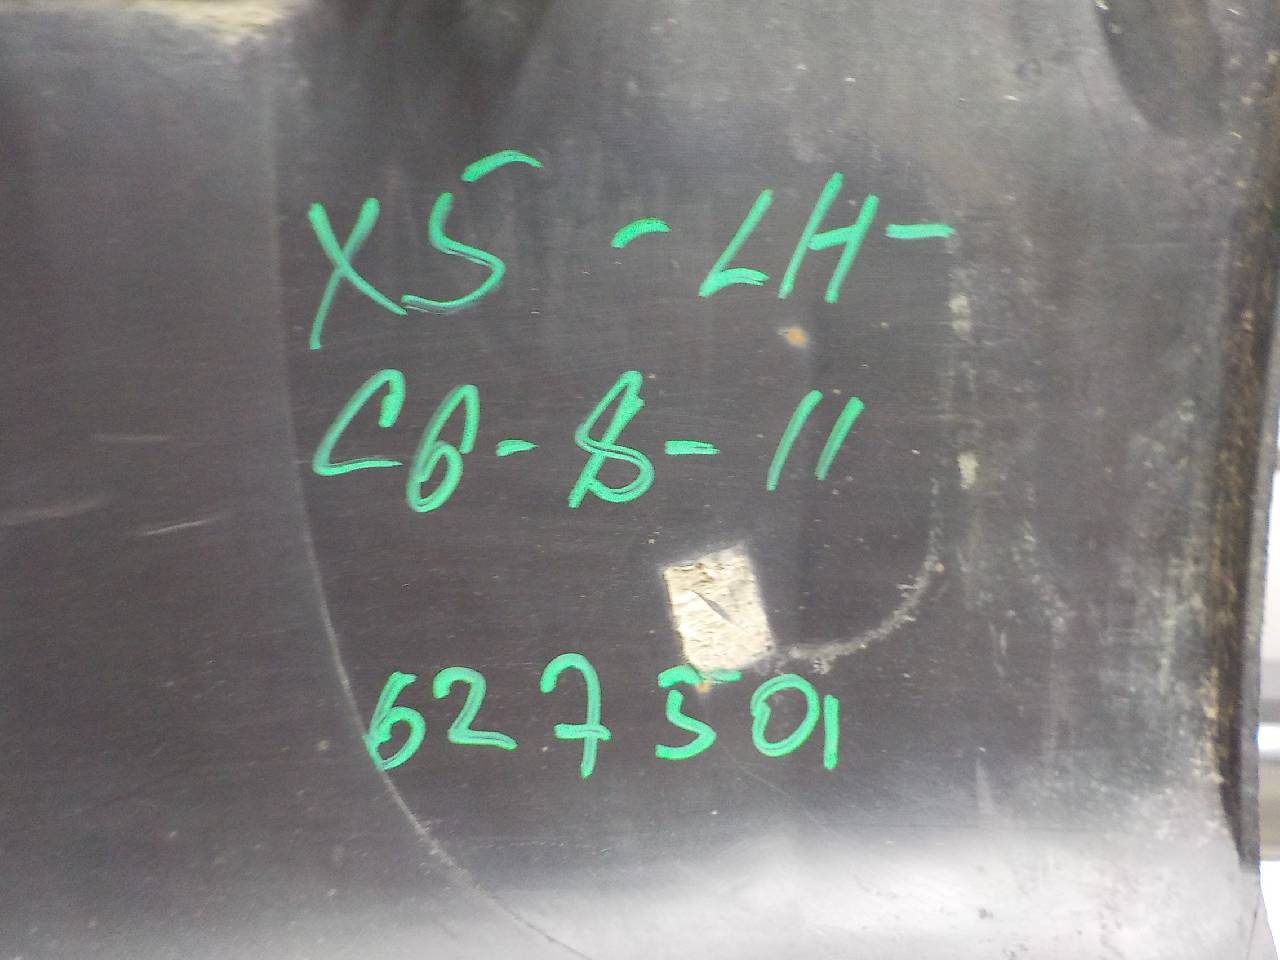 X5 - LH-
C6-8-11
627501